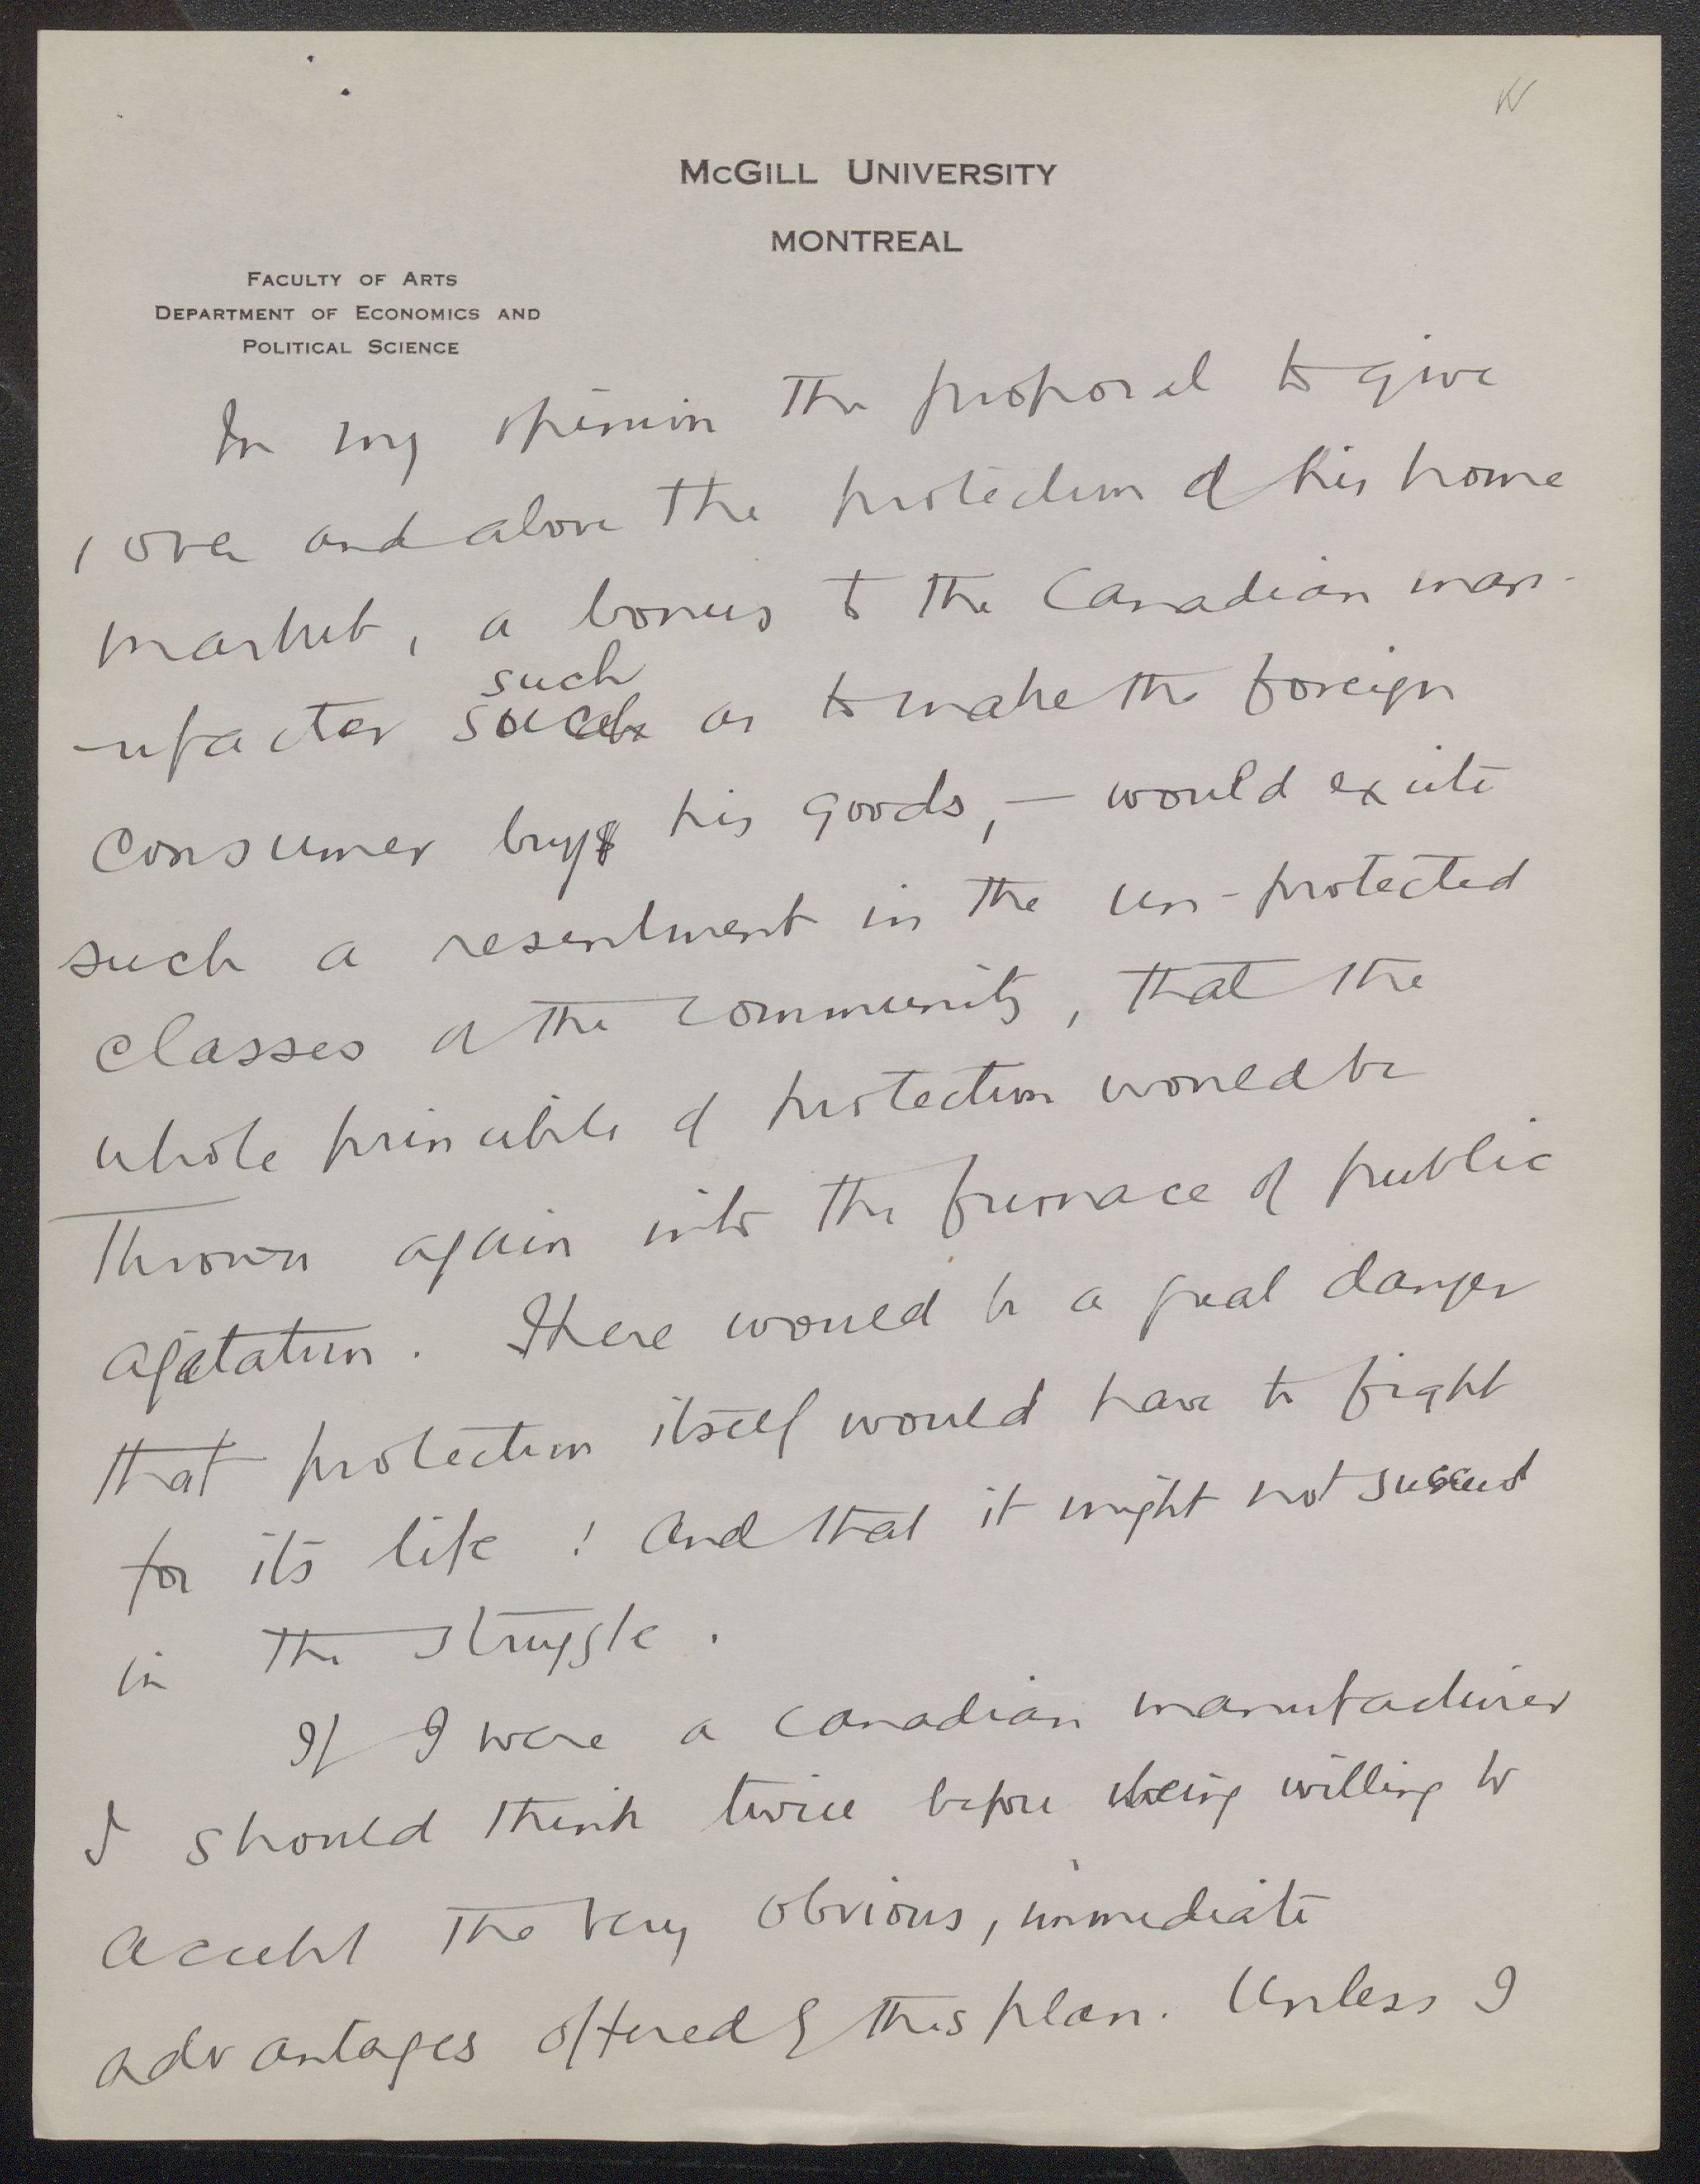 McGILL UNIVERSITY
MONTREAL
FACULTY OF ARTS
DEPARTMENT OF ECONOMICS AND
POLITICAL SCIENCE
In my opinion the proposal to give
, over and above the protection of his home
market, a bonus to the Canadian man-
-ufacter such
such as to make the foreign
consumer buy his goods, — would excite
such a resentment in the un-protected
classes of the community, that the
whole principle of protection would be
thrown again into the furnace of public
agitation. There would be a great danger
that protection itself would have to fight
for its life! And that it might not succeed
in the struggle.
If I were a Canadian manufacturer
I should think twice before being willing to
accept the very obvious, immediate
advantages offered by this plan. Unless I